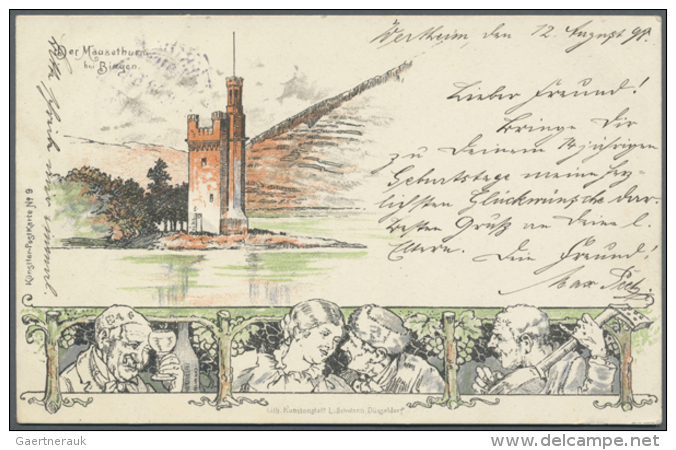 Der Mäusethurm
bei Bingen.
Künstler-Postkarte No 9
Wertheim den 12. August 98.
Lieber Freund!
Bringe Dir
zu Deinem 14 jährigen
Geburtstage meine herz-
lichsten Glückwünsche dar.
Besten Gruß an Deine l.
Eltern. Dein Freund!
Max
Lith. Kunstanstalt L. Düsseldorf
Gaertnerauk
www.delcampe.net